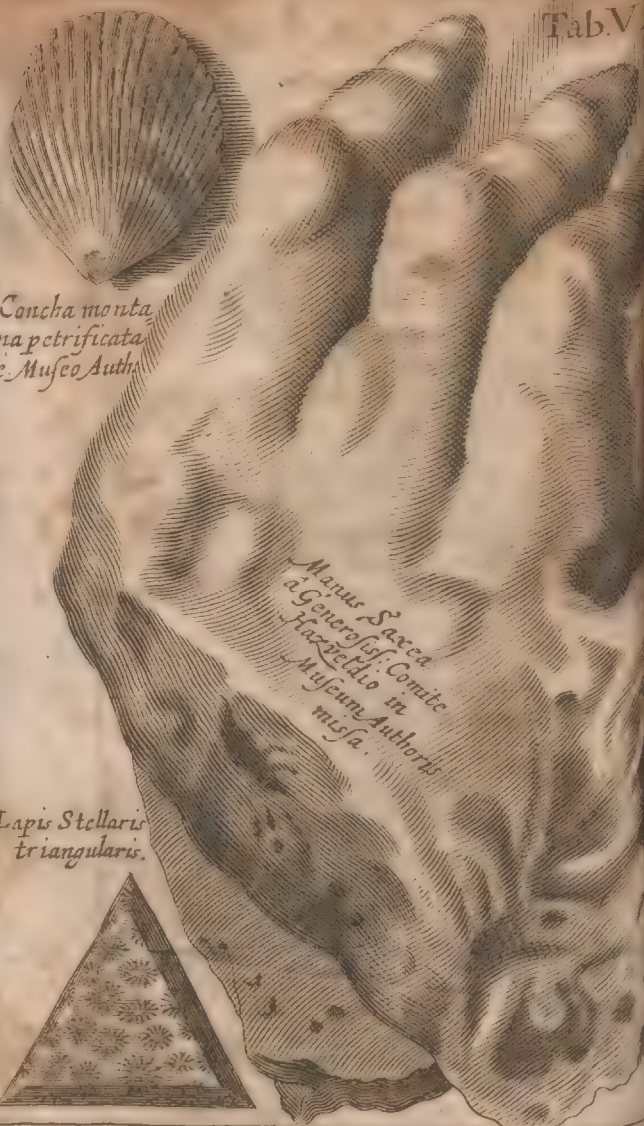 Tab. V
Concha monta
na petrificata
è Museo Auth:
Manus Saxea
â Generosiss: Comite
Hazveldio in
Museum Authoris
missa.
Lapis Stellaris
triangularis.